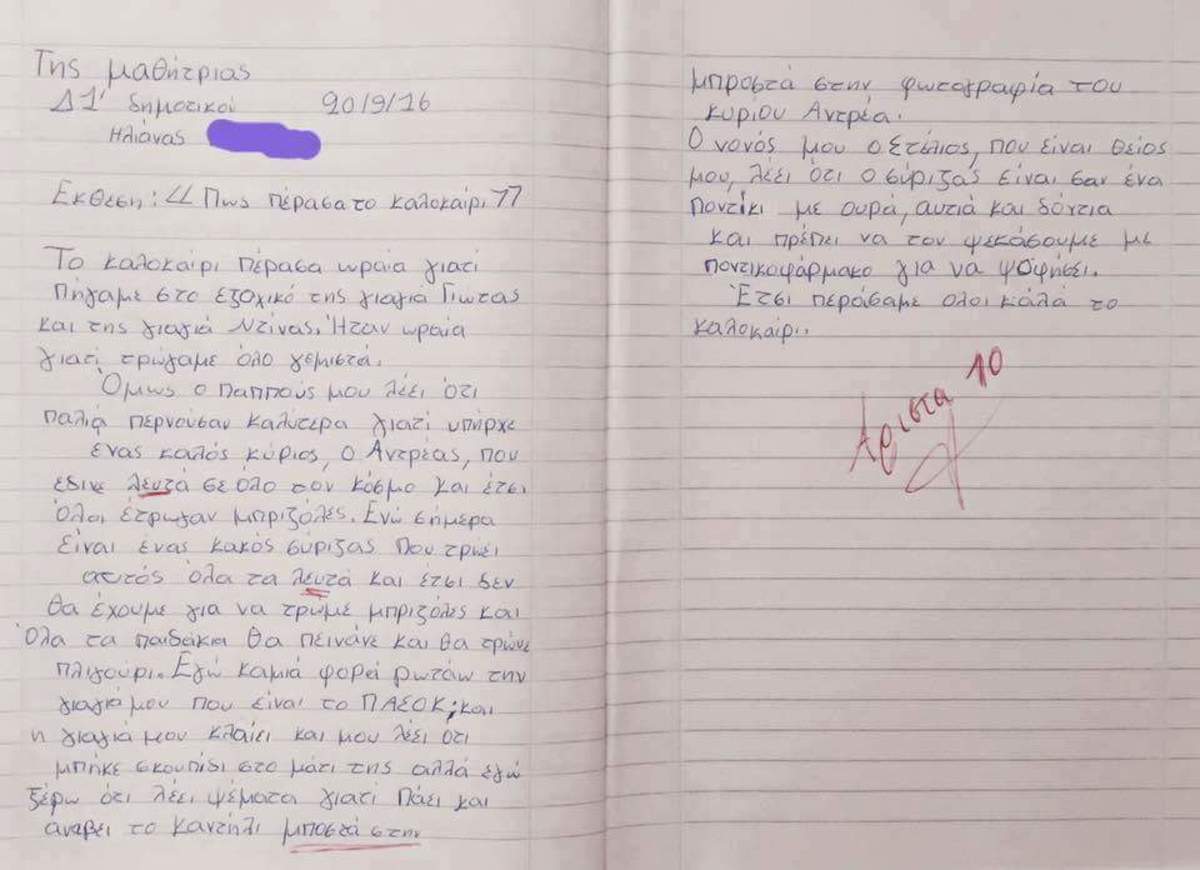 Της μαθήτριας
Δ1' δημοτικού 20/9/16
Ηλιάνας
Εκθεση: << Πως πέρασα το καλοκαίρι >>
Το καλοκαίρι πέρασα ωραία γιατί
πήγαμε στο εξοχικό της γιαγιά Γιωτας
και της γιαγιά Ντίνας. Ήταν ωραία
γιατί τρώγαμε όλο γεμιστά.
Όμως ο παππούς μου λέει ότι
παλιά περνούσαν καλύτερα γιατί υπήρχε
ένας καλός κύριος, ο Αντρέας, που
έδινε λευτά σε όλο τον κόσμο και έτσι
όλοι έτρωγαν μπριζόλες. Ενώ σήμερα
είναι ένας κακός σύριζας που τρώει
αυτός όλα τα λευτά και έτσι δεν
θα έχουμε για να τρώμε μπριζόλες και
όλα τα παιδάκια θα πεινάνε και θα τρώνε
πλιγούρι. Εγώ καμιά φορεί ρωτάω την
γιαγιά μου που είναι το ΠΑΣΟΚ; και
η γιαγιά μου κλαίει και μου λέει ότι
μπήκε σκουπίδι στο μάτι της αλλά εγώ
ξέρω ότι λέει ψέματα γιατί πάει και
ανάβει το καντήλι μποστά στην
μπροστά στην φωτογραφία του
κυρίου Αντρέα.
Ο νονός μου ο Στέλιος, που είναι θείος
μου, λέει ότι ο σύριζας είναι σαν ένα
ποντίκι με ουρά, αυτιά και δόντια
και πρέπει να τον ψεκάσουμε με
ποντικοφάρμακο για να ψοφήσει.
Έτσι περάσαμε ολοι καλά το
καλοκαίρι.
Άριστα 10